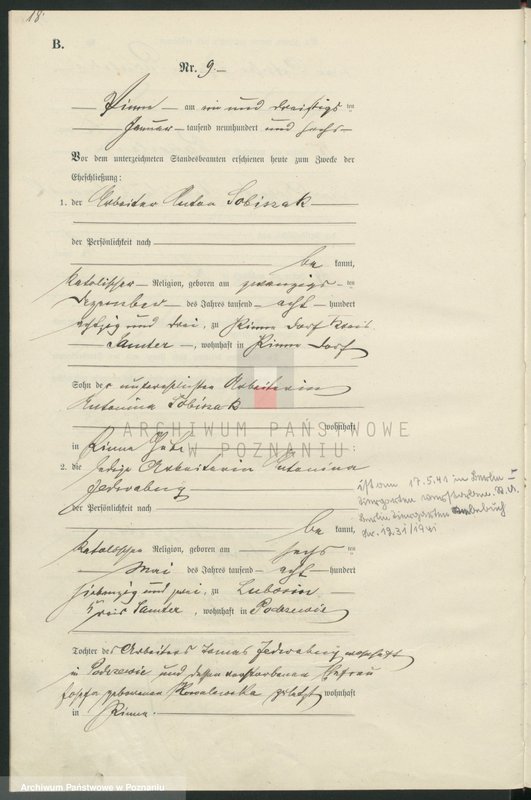 18
B.
Nr. 9.
Pinne am ein und dreißigsten
Januar tausend neunhundert und sechs
Vor dem unterzeichneten Standesbeamten erschienen heute zum Zwecke der
Eheschließung:
1. der Arbeiter Anton Sobiszak
der Persönlichkeit nach
be kannt,
katolischer Religion, geboren am zwanzigsten
Dezember des Jahres tausend acht hundert
achtzig und drei, zu Pinne Dorf Kreis
Samter, wohnhaft in Pinne Dorf
Sohn der unverehelichten Arbeiterin
Antonina Sobiszak
wohnhaft
in Pinne Gut
2. die ledige Arbeiterin Antonina
Jedwabny
der Persönlichkeit nach
be kannt,
katolischer Religion, geboren am sechs ten
Mai des Jahres tausend acht hundert
siebenzig und zwei, zu Lubosin
Kreis Samter, wohnhaft in Podrzewie
Tochter des Arbeiters Tomas Jedwabny wohnhaft
in Podrzewie und dessen verstorbenen Ehefrau
Josefa geborenen Kowalewska zuletzt wohnhaft
in Pinne.
ist am 17.5.41 in Berlin-
Tiergarten verstorben. St. A.
Berlin Tiergarten Sterbebuch
Nr. 1231/1941
ARCHIWUM PAŃSTWOWE
W POZNANIU
Archiwum Państwowe w Poznaniu